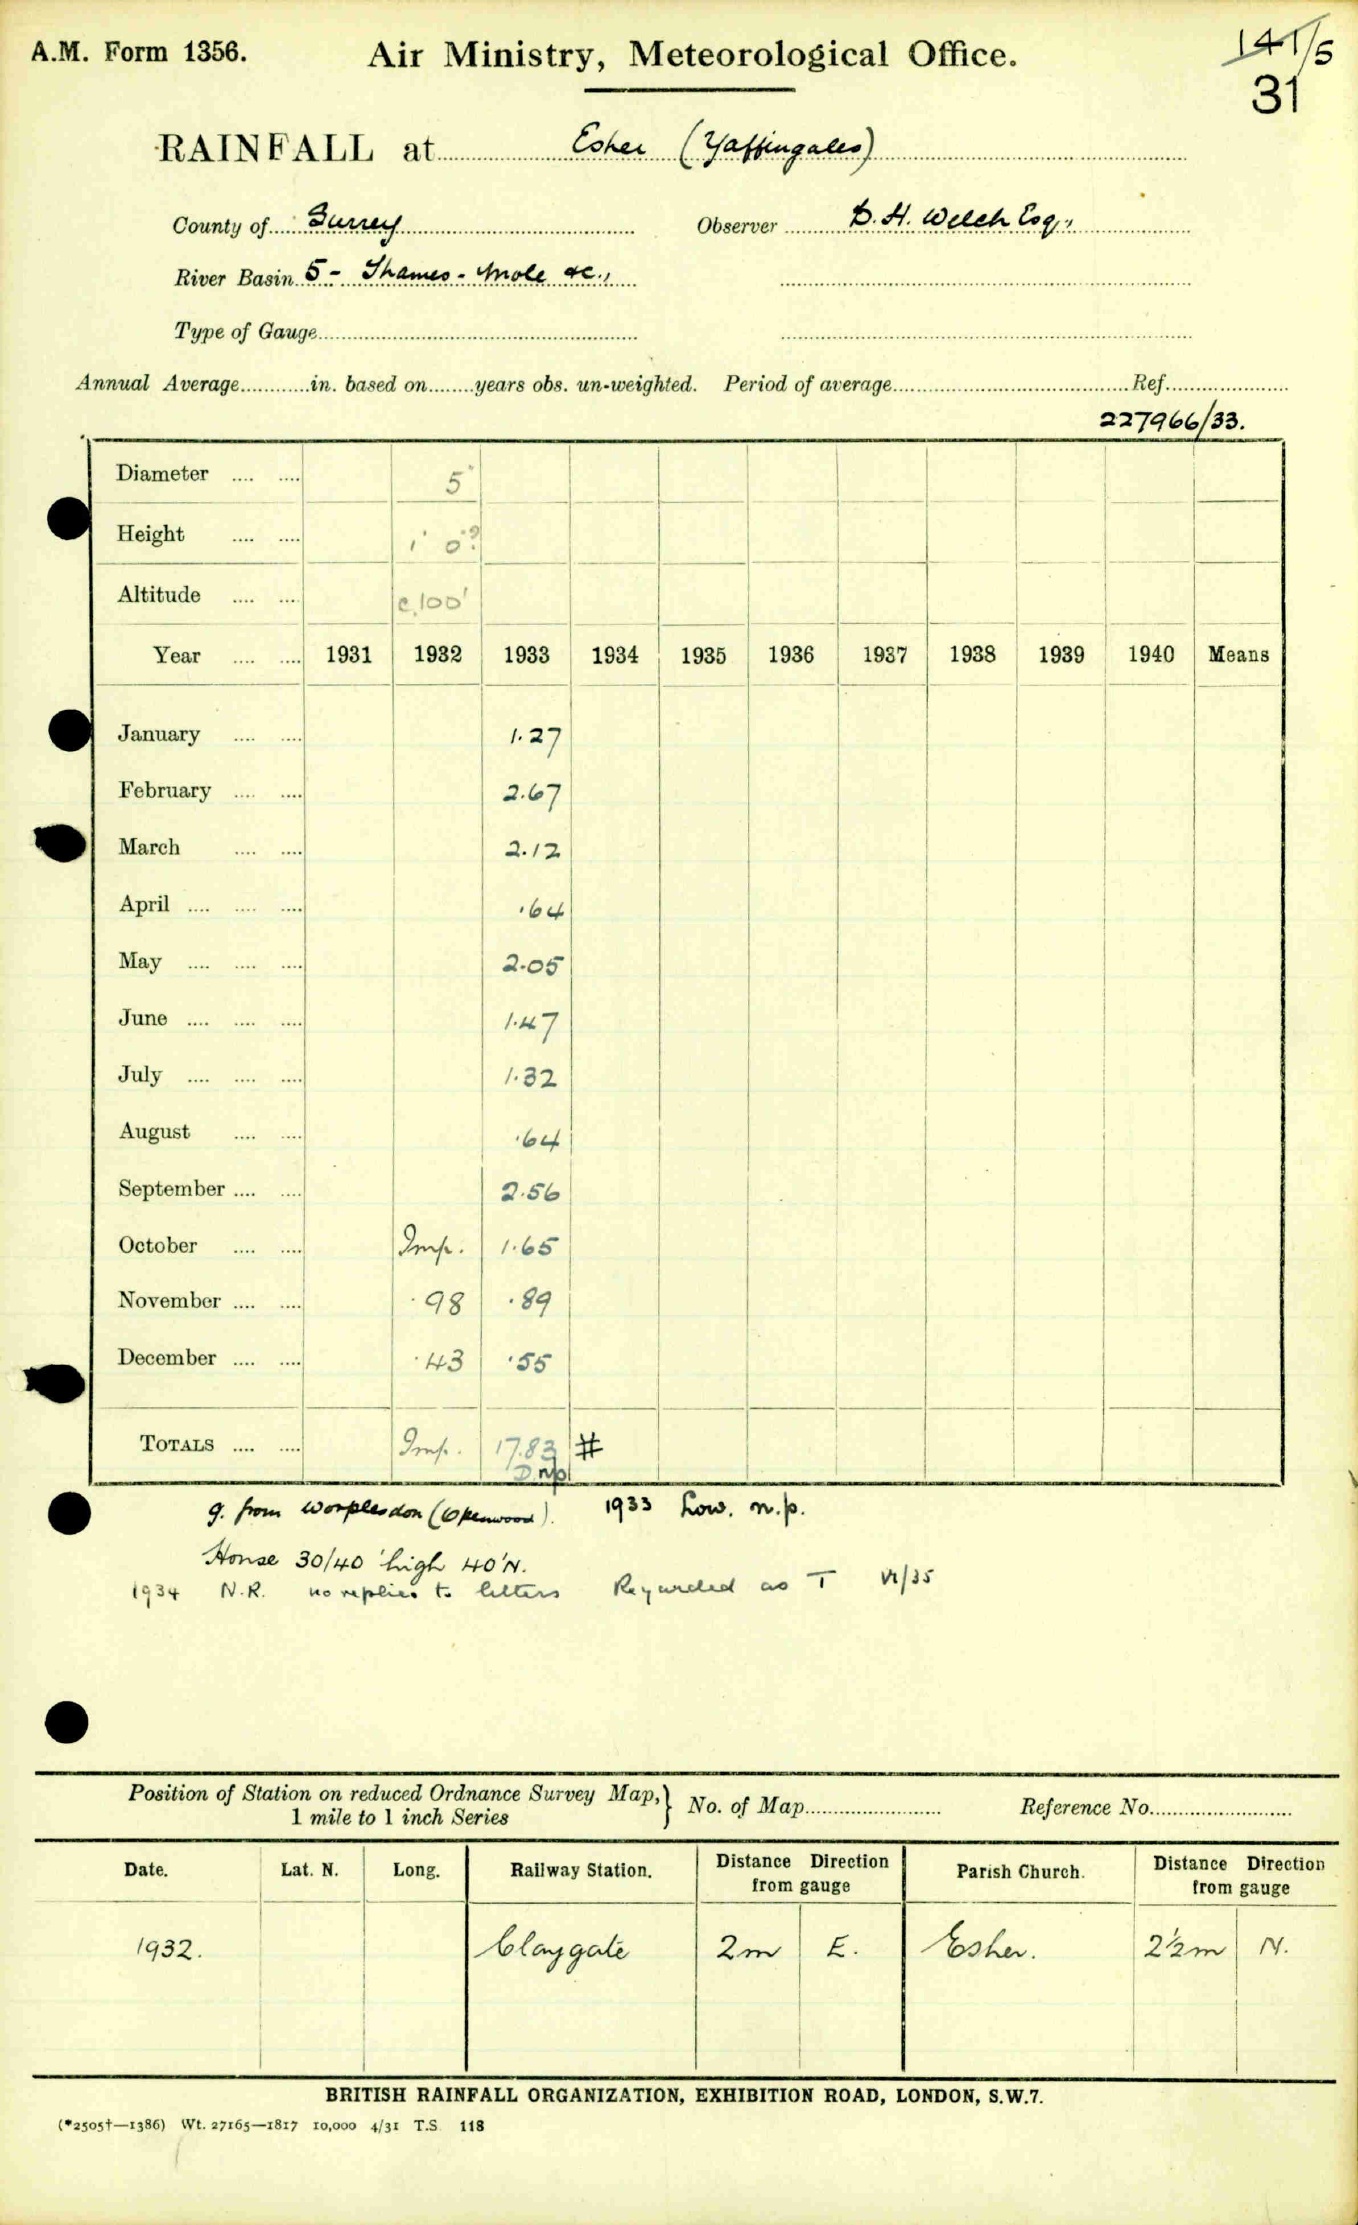 A.M. Form 1356.
Air Ministry, Meteorological Office.
141/5
31
RAINFALL at Esher (Yaffingales)
County of Surrey Observer D. H. Welch Esq.,
River Basin 5 - Thames - Mole &c.,
Type of Gauge
Annual Average in. based on years obs. un-weighted. Period of average Ref.
227966/33.
Diameter 5"
Height 1' 0"?
Altitude c.100'
Year 1931 1932 1933 1934 1935 1936 1937 1938 1939 1940 Means
January 1.27
February 2.67
March 2.12
April .64
May 2.05
June 1.47
July 1.32
August .64
September 2.56
October Imp. 1.65
November .98 .89
December .43 .55
TOTALS Imp. 17.83 #
D. np
g. from Worplesdon (Okenwood). 1933 Low. n.p.
House 30/40' high 40'N.
1934 N.R. no replies to letters Regarded as T VI/35
Position of Station on reduced Ordnance Survey Map, } No. of Map Reference No.
1 mile to 1 inch Series
Date. Lat. N. Long. Railway Station. Distance Direction from gauge Parish Church. Distance Direction from gauge
1932. Claygate 2m E. Esher. 2½m N.
BRITISH RAINFALL ORGANIZATION, EXHIBITION ROAD, LONDON, S.W.7.
(*2505†—1386) Wt. 27165—1817 10,000 4/31 T.S. 118